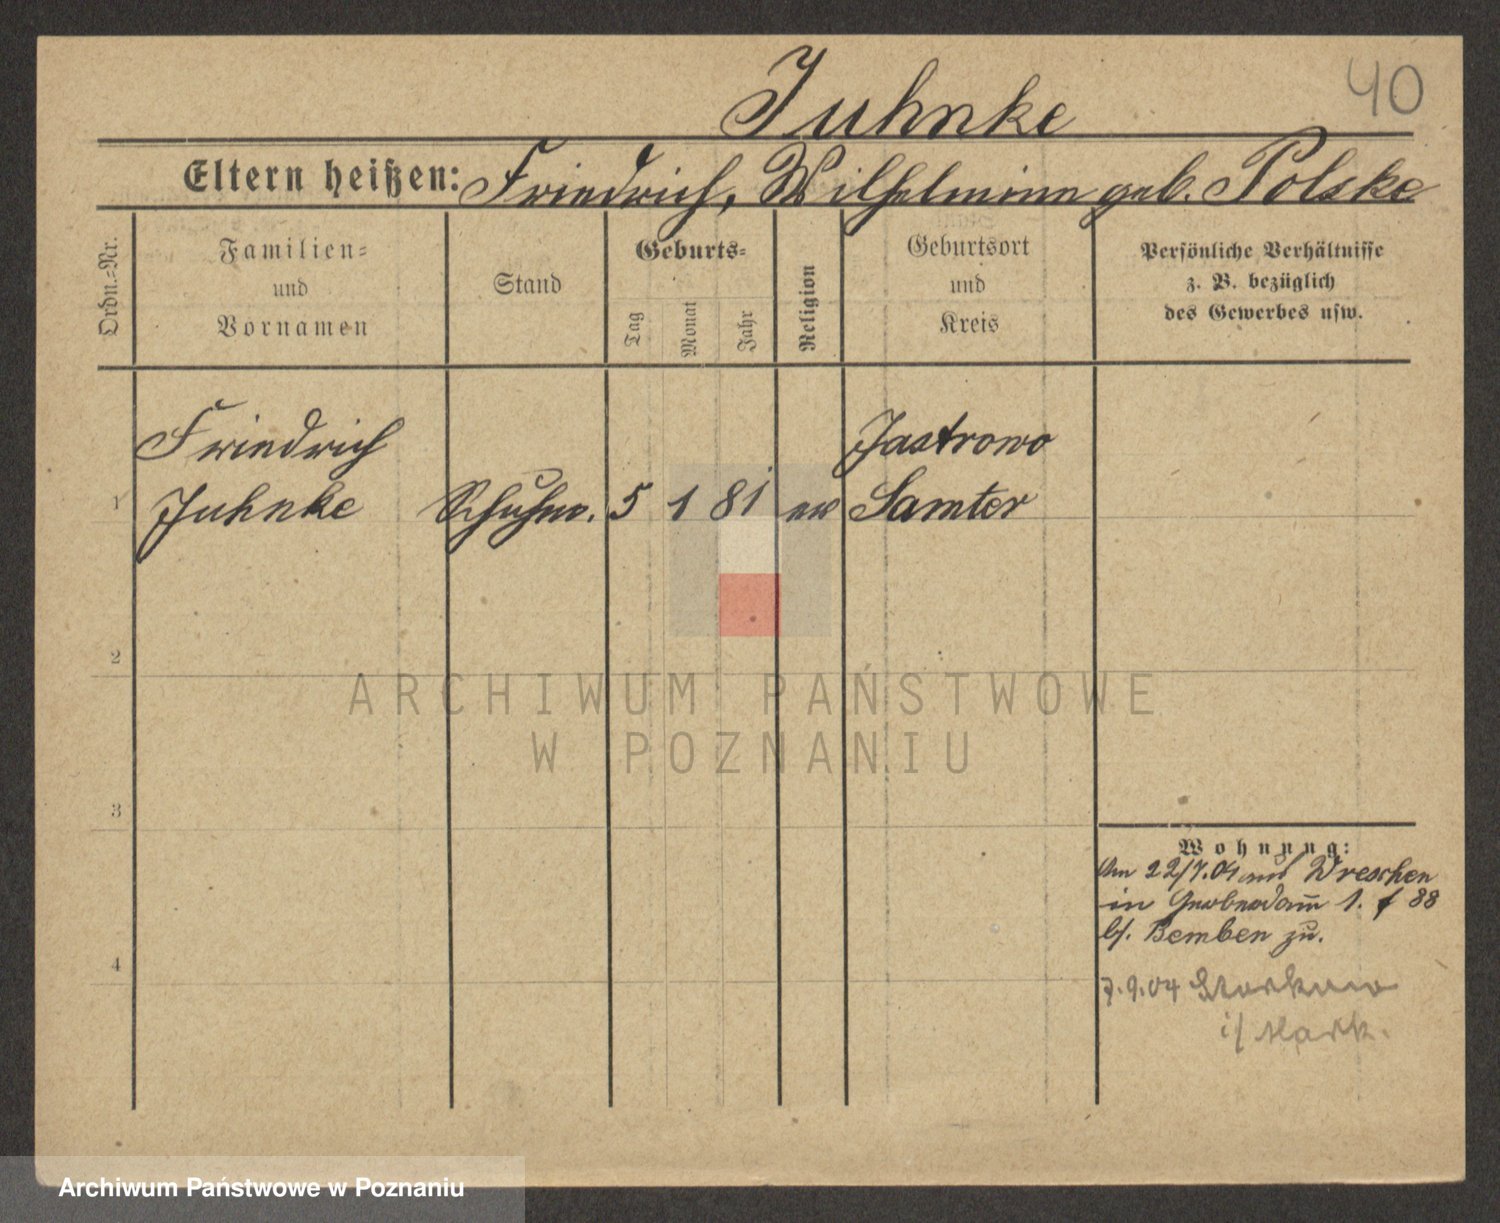 40
Juhnke
Eltern heißen: Friedrich, Wilhelmine geb. Polske
Ordn.=Nr.
Familien=
und
Vornamen
Stand
Geburts=
Tag
Monat
Jahr
Religion
Geburtsort
und
Kreis
Persönliche Verhältnisse
z. B. bezüglich
des Gewerbes usw.
Friedrich
Jastrowo
1 Juhnke Schuhm. 5 1 81 ev Samter
2
ARCHIWUM PAŃSTWOWE
W POZNANIU
3
Wohnung:
Am 22/7.04 aus Wreschen
in Gerberdam̅ 1. f 88
b/. Bemben zu.
4
7.9.04 Storkow
i/ Mark.
Archiwum Państwowe w Poznaniu